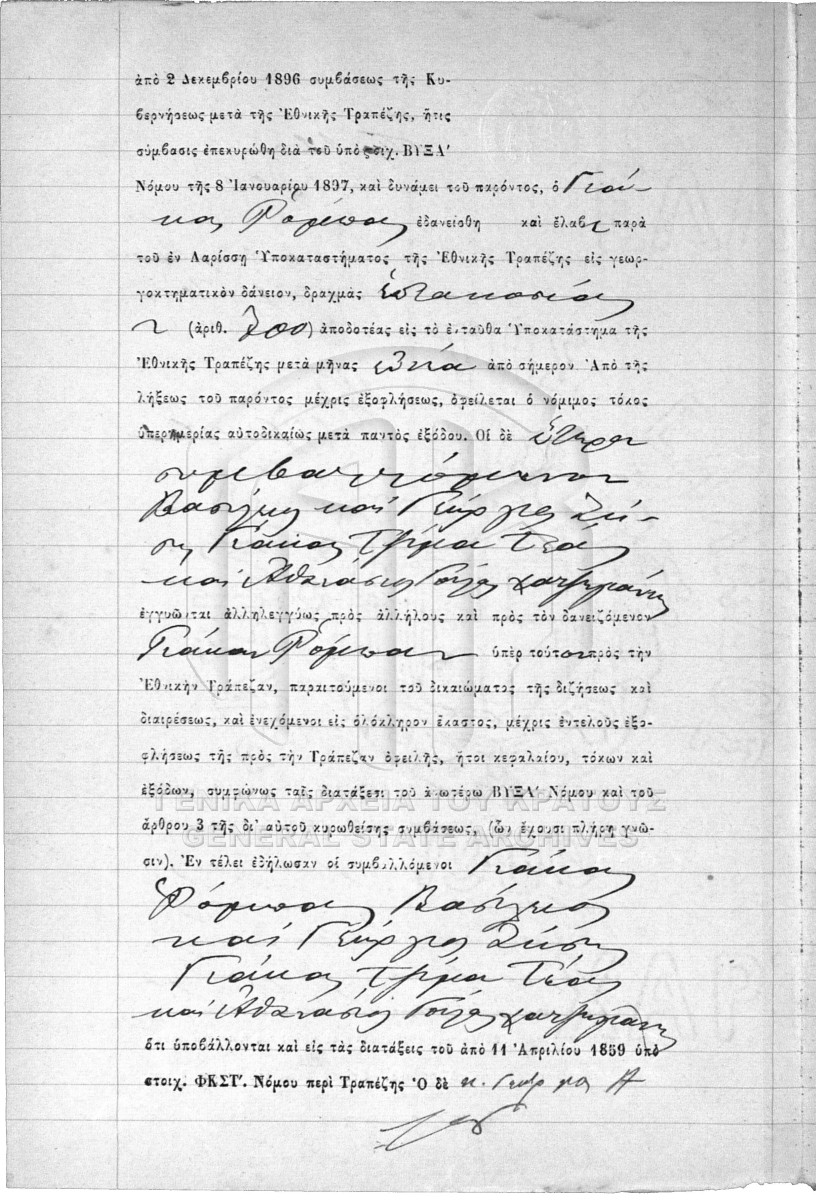 ἀπὸ 2 Δεκεμβρίου 1896 συμβάσεως τῆς Κυ-
βερνήσεως μετὰ τῆς Ἐθνικῆς Τραπέζης, ἥτις
σύμβασις ἐπεκυρώθη διὰ τοῦ ὑπὸ στοιχ. ΒΥΞΑ′
Νόμου τῆς 8 Ἰανουαρίου 1897, καὶ δυνάμει τοῦ παρόντος, ὁ Γιά-
κας Ῥόμπας ἐδανείσθη καὶ ἔλαβε παρὰ
τοῦ ἐν Λαρίσσῃ Ὑποκαταστήματος τῆς Ἐθνικῆς Τραπέζης εἰς γεωρ-
γοκτηματικὸν δάνειον, δραχμὰς ἑπτακοσίας
(ἀριθ. 700) ἀποδοτέας εἰς τὸ ἐνταῦθα Ὑποκατάστημα τῆς
Ἐθνικῆς Τραπέζης μετὰ μῆνας ἐννέα ἀπὸ σήμερον. Ἀπὸ τῆς
λήξεως τοῦ παρόντος μέχρις ἐξοφλήσεως, ὀφείλεται ὁ νόμιμος τόκος
ὑπερημερίας αὐτοδικαίως μετὰ παντὸς ἐξόδου. Οἱ δὲ ἕτεροι
συμβαλλόμενοι
Βασίλειος καὶ Γεώργιος Ζήσ-
ης Γιάκας
καὶ Ἀθανάσιος Χατζηγιάννης
ἐγγυῶνται ἀλληλεγγύως πρὸς ἀλλήλους καὶ πρὸς τὸν δανειζόμενον
Γιάκαν Ῥόμπαν ὑπὲρ τούτου πρὸς τὴν
Ἐθνικὴν Τράπεζαν, παραιτούμενοι τοῦ δικαιώματος τῆς διζήσεως καὶ
διαιρέσεως, καὶ ἐνεχόμενοι εἰς ὁλόκληρον ἕκαστος, μέχρις ἐντελοῦς ἐξο-
φλήσεως τῆς πρὸς τὴν Τράπεζαν ὀφειλῆς, ἤτοι κεφαλαίου, τόκων καὶ
ἐξόδων, συμφώνως ταῖς διατάξεσι τοῦ ἀνωτέρω ΒΥΞΑ′ Νόμου καὶ τοῦ
ΓΕΝΙΚΑ ΑΡΧΕΙΑ ΤΟΥ ΚΡΑΤΟΥΣ
ἄρθρου 3 τῆς δι' αὐτοῦ κυρωθείσης συμβάσεως, (ὧν ἔχουσι πλήρη γνῶ-
GENERAL STATE ARCHIVES
σιν). Ἐν τέλει ἐδήλωσαν οἱ συμβαλλόμενοι Γιάκας
Ῥόμπας Βασίλειος
καὶ Γεώργιος Ζήσης
Γιάκας
καὶ Ἀθανάσιος Χατζηγιάννης
ὅτι ὑποβάλλονται καὶ εἰς τὰς διατάξεις τοῦ ἀπὸ 11 Ἀπριλίου 1859 ὑπὸ
στοιχ. ΦΚΣΤ′. Νόμου περὶ Τραπέζης Ὁ δὲ κ. Γεώργιος Α